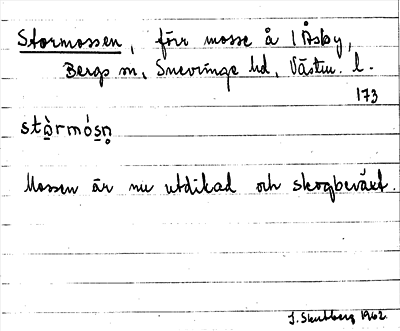 Stormossen, förr mosse å 1 Åsby,
Bergs sn, Snevringe hd, Västm. l.
173
stò̱rmós̱n̥
Mossen är nu utdikad och skogbeväxt.
J. Skutberg 1962